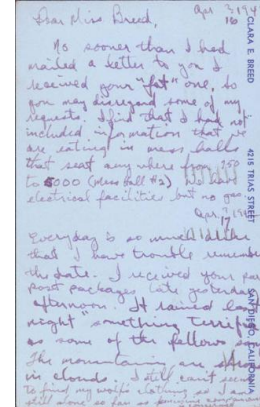 Dear Miss Breed,
No sooner than I had
mailed a letter to you I
received your "fat" one, so
you may disregard some of my
requests. I find that I had not
included information that we
are eating in mess halls
that seat any where from 250
to 5000 (mess hall #2) We have
electrical facilities but no gas
Everyday is so much alike
that I have trouble
the date. I received your
post packages late yesterday
afternoon. It rained last
night "something terrific"
as some of the fellows say
The mountains are
in clouds. I still can't seem
to find my clothing so I am
still
CLARA E. BREED
4215 TRIAS STREET
SAN DIEGO, CALIFORNIA